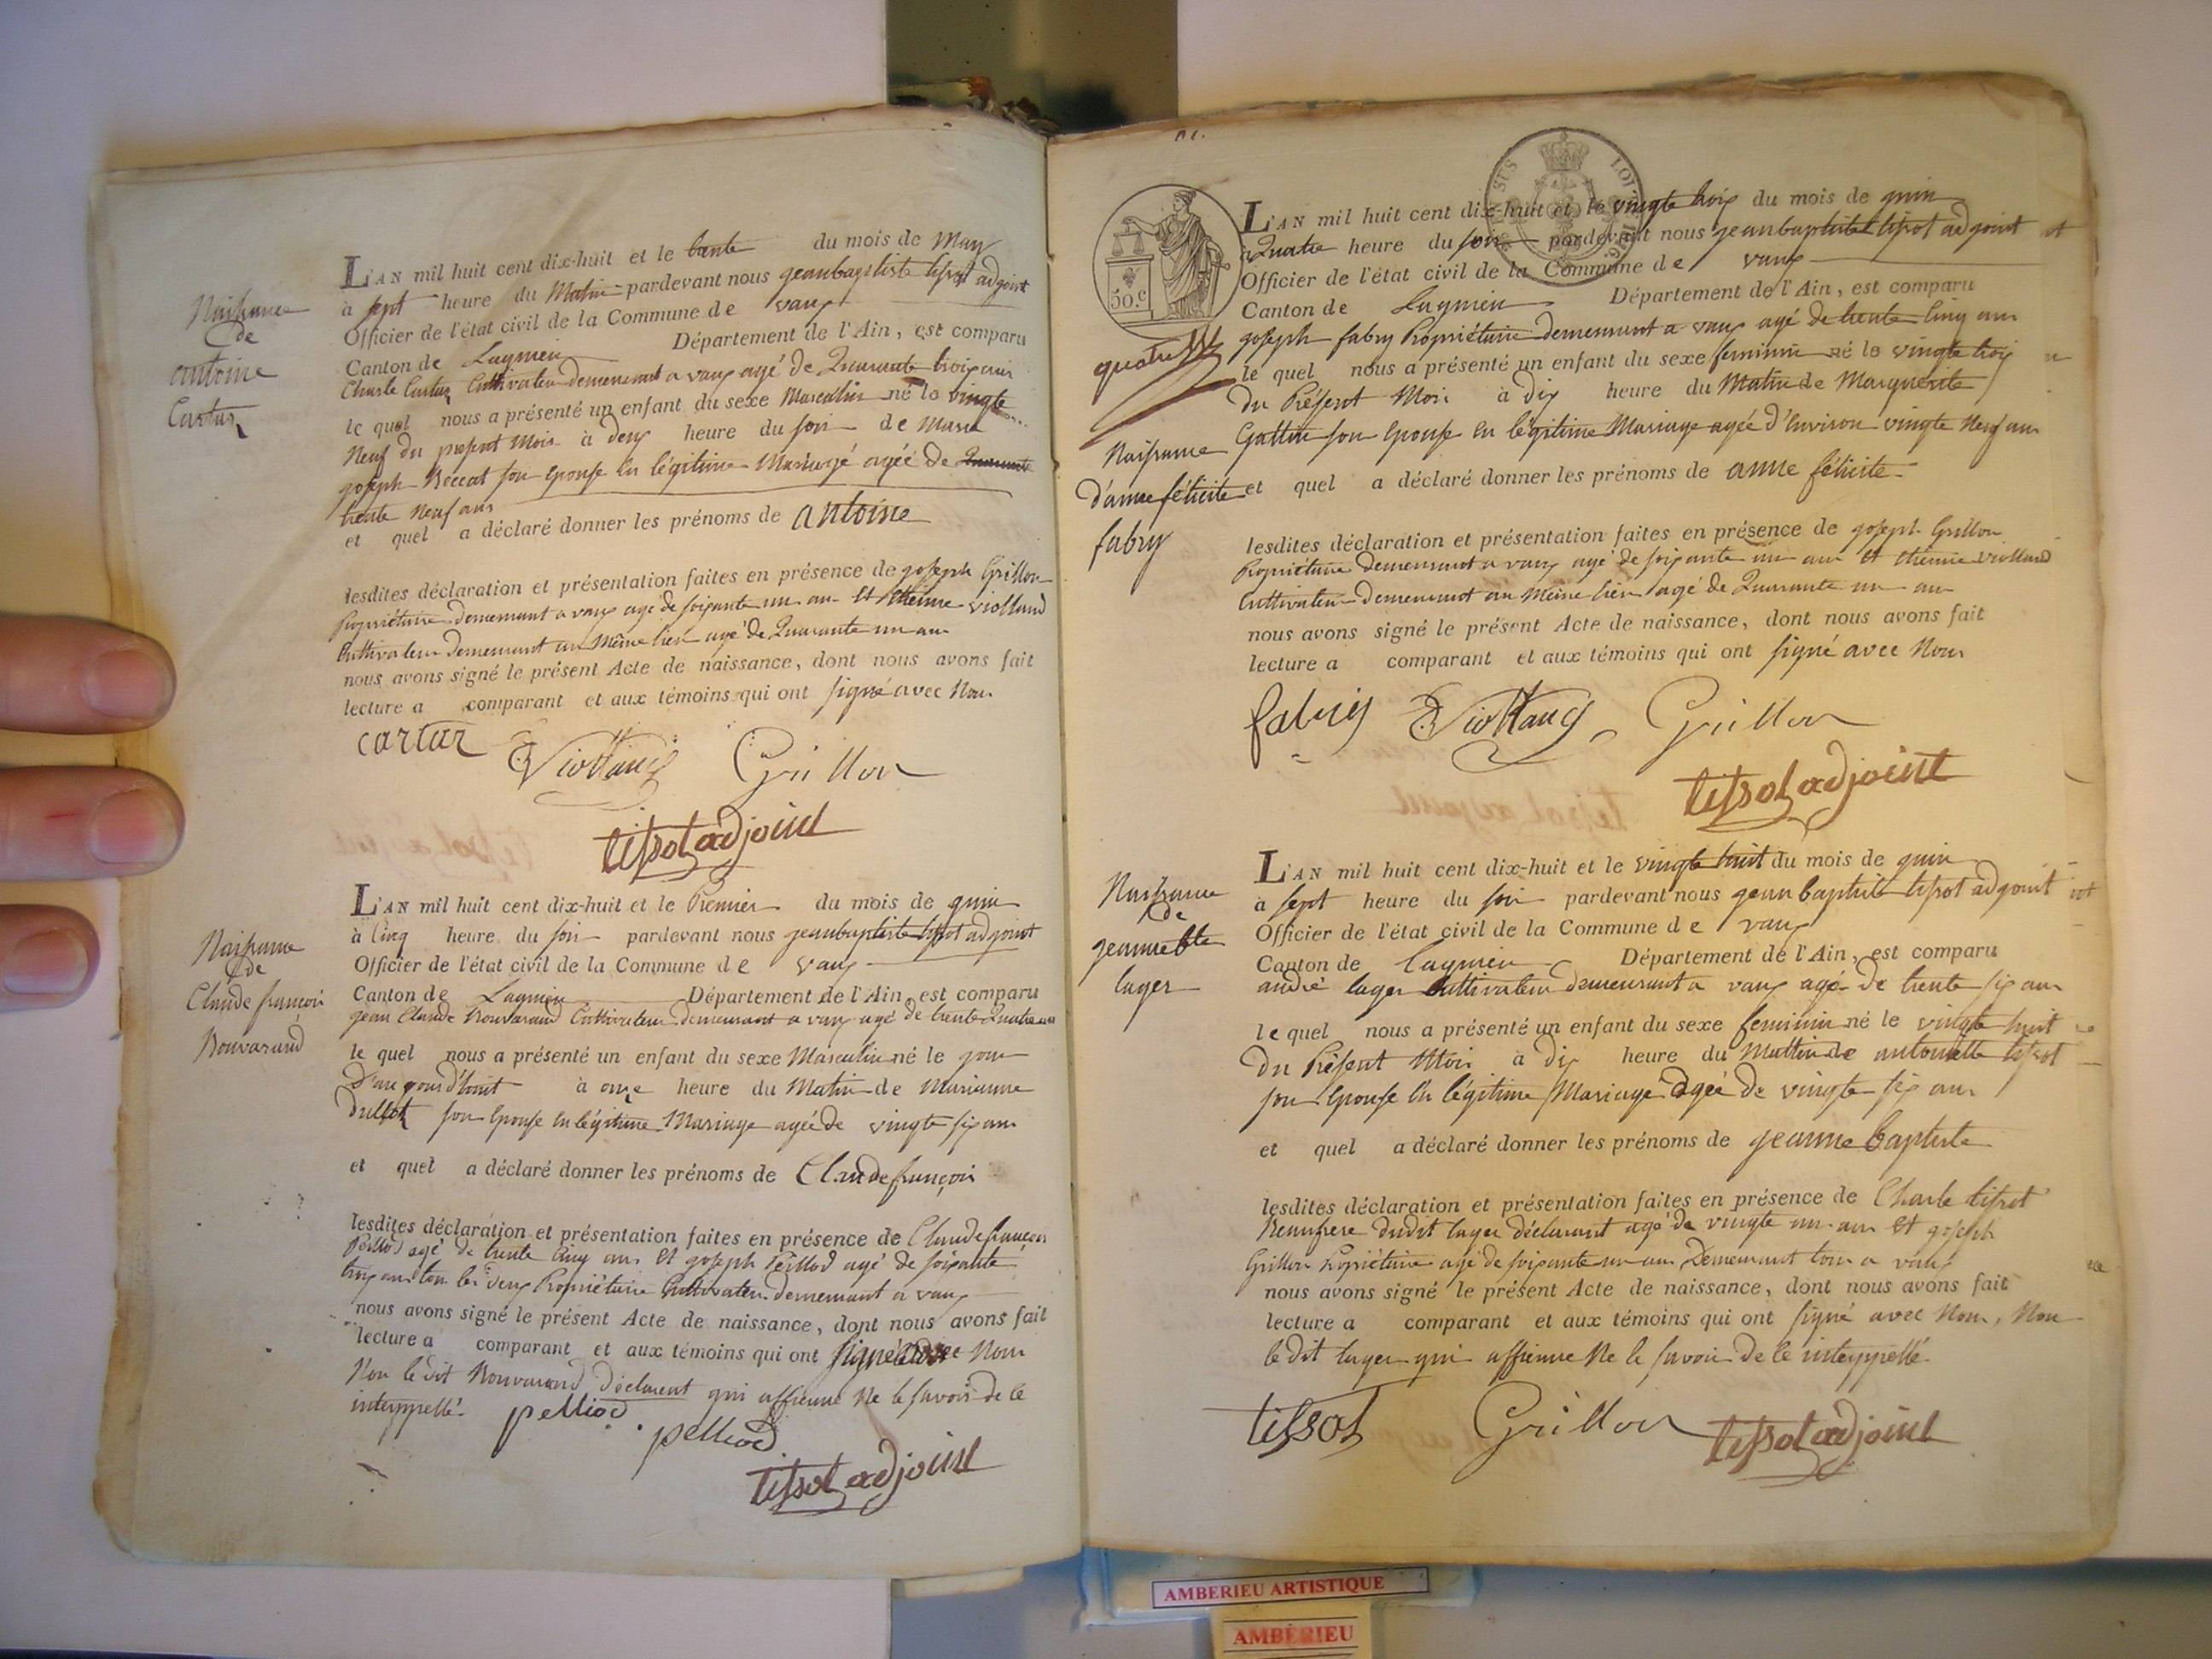 Naissance
de
antoine
Cartaz
L'AN mil huit cent dix-huit et le trente du mois de May
à sept heure du Matin pardevant nous jeanbaptiste tissot adjoint
Officier de l'état civil de la Commune de vaux
Canton de Lagnieu Département de l'Ain, est comparu
Charle Cartaz Cultivateur demeurant a vaux agé de Quarante trois ans
le quel nous a présenté un enfant du sexe Masculin né le vingte
Neuf du present Mois à deux heure du soir de Marie
joseph Boccat son epouse En légitime Mariagé agéé de Quarante
trente Neuf ans
et quel a déclaré donner les prénoms de antoine
lesdites déclaration et présentation faites en présence de joseph Grillon
propriétaire demeurant a vaux agé de soixante un an Et Etienne violland
Cultivateur demeurant au Même lieu agé de Quarante un an
nous avons signé le présent Acte de naissance, dont nous avons fait
lecture a comparant et aux témoins qui ont signé avec Nous
cartaz E Violland Grillon
tissot adjoint
Naissance
de
Claude françois
Bouvarand
L'AN mil huit cent dix-huit et le Premier du mois de juin
à Cinq heure du soir pardevant nous jeanbaptiste tissot adjoint
Officier de l'état civil de la Commune de vaux
Canton de Lagnieu Département de l'Ain, est comparu
jean Claude Bouvarand Cultivateur demeurant a vaux agé de trente Quatre ans
le quel nous a présenté un enfant du sexe Masculin né le jour
D'aujourd'huit à onze heure du Matin de Marianne
son Epouse En légitime Mariage agéé de vingte six ans
et quel a déclaré donner les prénoms de Claude françois
lesdites déclaration et présentation faites en présence de Claude françois
Pelliod agé de trente Cinq ans Et joseph Pelliod agé de soixante
trois ans tou les deux Propriétaire Cultivateur demeurant a vaux
nous avons signé le présent Acte de naissance, dont nous avons fait
lecture a comparant et aux témoins qui ont signé avec Nous
Non le dit Bouvarand déclarent qui affirme Ne le savoir de ce
interppellé. pelliod. pelliod
tissot adjoint
50.c
L'AN mil huit cent dix-huit et le vingte trois du mois de juin
à Quatre heure du soir pardevant nous jeanbaptiste tissot adjoint
Officier de l'état civil de la Commune de vaux
Canton de Lagnieu Département de l'Ain, est comparu
joseph fabry Propriétaire demeurant a vaux agé de trente Cinq ans
le quel nous a présenté un enfant du sexe feminin né le vingte trois
du Présent Mois à dix heure du Matin de Marguerite
Gallin son Epouse En légitime Mariage agéé d'Environ vingte Neuf ans
et quel a déclaré donner les prénoms de anne félicite
Naissance
d'anne félicite
fabry
lesdites déclaration et présentation faites en présence de joseph Grillon
Propriétaire demeurant a vaux agé de soixante un an Et Etienne violland
Cultivateur demeurant au Même lieu agé de Quarante un an
nous avons signé le présent Acte de naissance, dont nous avons fait
lecture a comparant et aux témoins qui ont signé avec Nous
fabry E Violland Grillon
tissot adjoint
Naissance
de
jeanne bte
lager
L'AN mil huit cent dix-huit et le vingte huit du mois de juin
à sept heure du soir pardevant nous jean baptiste tissot adjoint
Officier de l'état civil de la Commune de vaux
Canton de Lagnieu Département de l'Ain, est comparu
andré lager Cultivateur demeurant a vaux agé de trente six ans
le quel nous a présenté un enfant du sexe feminin né le vingte huit
du Présent Mois à dix heure du Mattin de antoinette tissot
son Epouse En légitime Mariage agéé de vingte six ans
et quel a déclaré donner les prénoms de jeanne baptiste
lesdites déclaration et présentation faites en présence de Charle tissot
Beaufrere dudit lager déclarant agé de vingte un ans Et joseph
Grillon Propriétaire agé de soixante un an demeurant tous a vaux
nous avons signé le présent Acte de naissance, dont nous avons fait
lecture a comparant et aux témoins qui ont signé avec Nous, Non
le dit lager qui affirme Ne le savoir de ce interppellé.
tissot Grillon tissot adjoint
AMBERIEU ARTISTIQUE
AMBÉRIEU